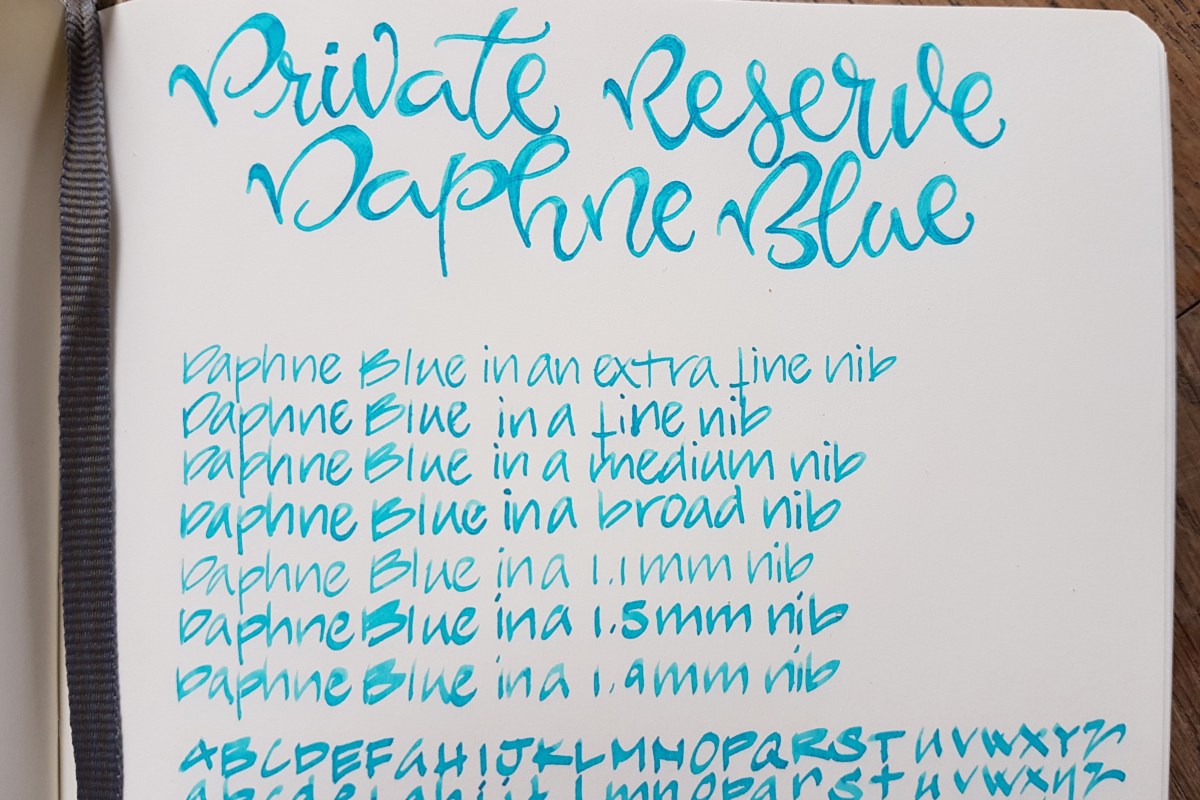 Private Reserve
Daphne Blue
Daphne Blue in an extra fine nib
Daphne Blue in a fine nib
Daphne Blue in a medium nib
Daphne Blue in a broad nib
Daphne Blue in a 1.1mm nib
Daphne Blue in a 1.5mm nib
Daphne Blue in a 1.9mm nib
ABCDEFGHIJKLMNOPQRSTUVWXYZ
abcdefghijklmnopqrstuvwxyz